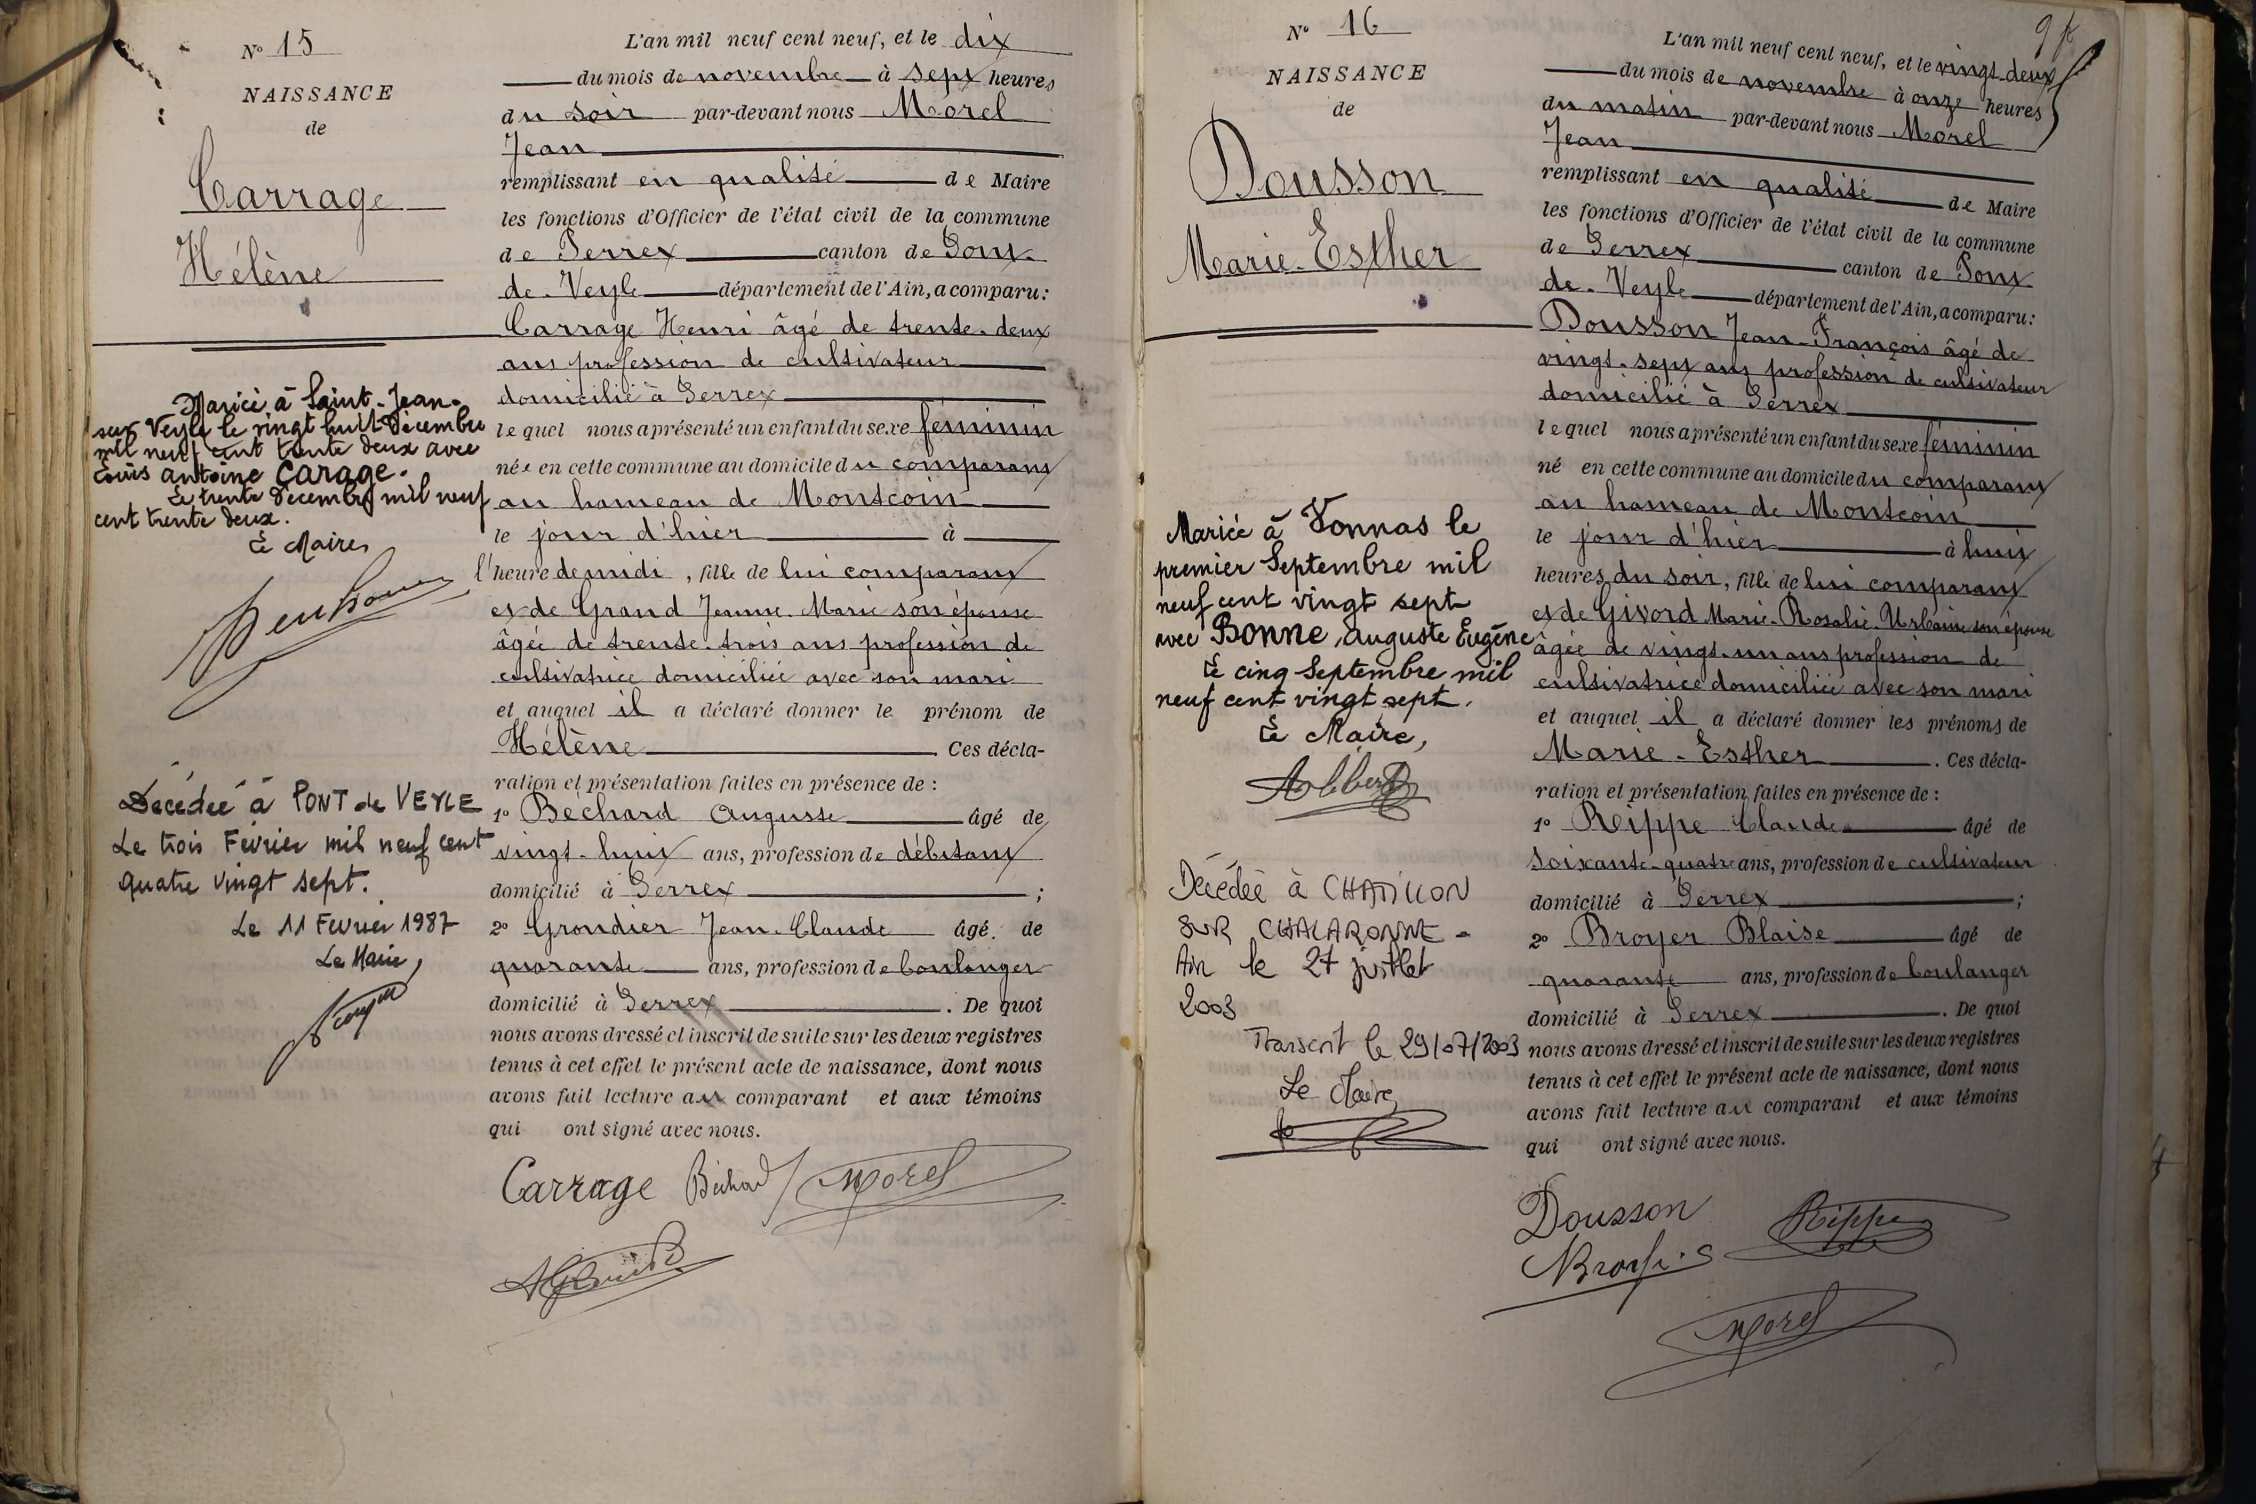 N° 15
NAISSANCE
de
Carrage
Hélène
Mariée à Saint-Jean-
sur Veyle le vingt huit Décembre
mil neuf cent trente deux avec
Louis Antoine Carage.
Le trente Décembre mil neuf
cent trente deux.
Le Maire,
Décédée à PONT de VEYLE
Le trois Février mil neuf cent
quatre vingt sept.
Le 11 Février 1987
Le Maire,
L'an mil neuf cent neuf, et le dix
du mois de novembre à sept heures
du soir par-devant nous Morel
Jean
remplissant en qualité de Maire
les fonctions d'Officier de l'état civil de la commune
de Perrex canton de Pont-
de-Veyle département de l'Ain, a comparu:
Carrage Henri âgé de trente-deux
ans profession de cultivateur
domicilié à Perrex
lequel nous a présenté un enfant du sexe féminin
née en cette commune au domicile du comparant
au hameau de Montcoin
le jour d'hier à
l'heure de midi, fille de lui comparant
et de Grand Jeanne-Marie son épouse
âgée de trente-trois ans profession de
cultivatrice domiciliée avec son mari
et auquel il a déclaré donner le prénom de
Hélène Ces décla-
ration et présentation faites en présence de :
1° Béchard Auguste âgé de
vingt-huit ans, profession de débitant
domicilié à Perrex ;
2° Grondier Jean-Claude âgé de
quarante ans, profession de boulanger
domicilié à Perrex. De quoi
nous avons dressé et inscrit de suite sur les deux registres
tenus à cet effet le présent acte de naissance, dont nous
avons fait lecture au comparant et aux témoins
qui ont signé avec nous.
Carrage Béchard Morel
N° 16
NAISSANCE
de
Dousson
Marie-Esther
Mariée à Vonnas le
premier Septembre mil
neuf cent vingt sept
avec Bonne, Auguste Eugène
Le cinq Septembre mil
neuf cent vingt sept.
Le Maire,
Décédée à CHATILLON
SUR CHALARONNE -
Ain le 27 juillet
2003
Transcrit le 29/07/2003
Le Maire,
L'an mil neuf cent neuf, et le vingt-deux
du mois de novembre à onze heures
du matin par-devant nous Morel
Jean
remplissant en qualité de Maire
les fonctions d'Officier de l'état civil de la commune
de Perrex canton de Pont-
de-Veyle département de l'Ain, a comparu:
Dousson Jean-François âgé de
vingt-sept ans profession de cultivateur
domicilié à Perrex
lequel nous a présenté un enfant du sexe féminin
né en cette commune au domicile du comparant
au hameau de Montcoin
le jour d'hier à huit
heures du soir, fille de lui comparant
et de Givord Marie-Rosalie-Urbaine son épouse
âgée de vingt-un ans profession de
cultivatrice domiciliée avec son mari
et auquel il a déclaré donner les prénoms de
Marie-Esther. Ces décla-
ration et présentation faites en présence de :
1° Rippe Claude âgé de
soixante-quatre ans, profession de cultivateur
domicilié à Perrex ;
2° Broyer Blaise âgé de
quarante ans, profession de boulanger
domicilié à Perrex. De quoi
nous avons dressé et inscrit de suite sur les deux registres
tenus à cet effet le présent acte de naissance, dont nous
avons fait lecture au comparant et aux témoins
qui ont signé avec nous.
Dousson Rippe
Morel